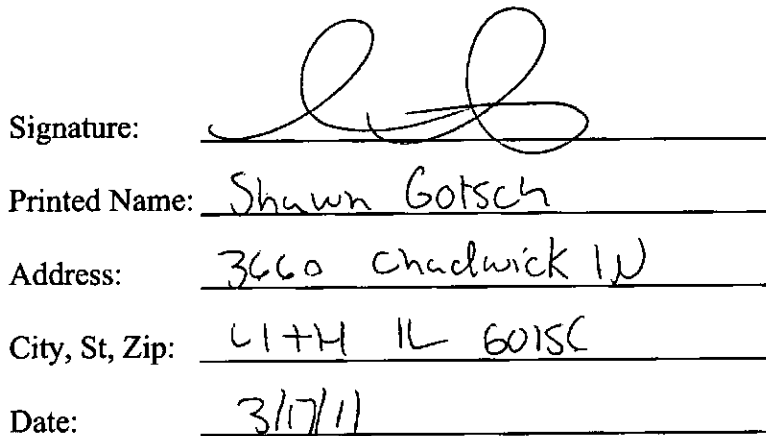 Signature:
Printed Name: Shawn Gotsch
Address: 3660 Chadwick LN
City, St, Zip: LITH IL 60156
Date: 3/17/11